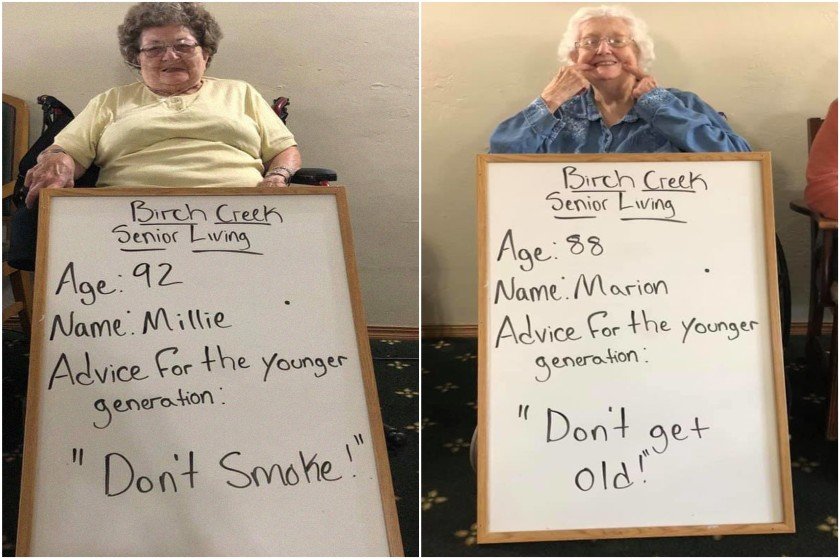 Birch Creek
Senior Living
Age: 92
Name: Millie
Advice for the younger
generation:
"Don't Smoke!"
Birch Creek
Senior Living
Age: 88
Name: Marion
Advice for the younger
generation:
"Don't get
old!"